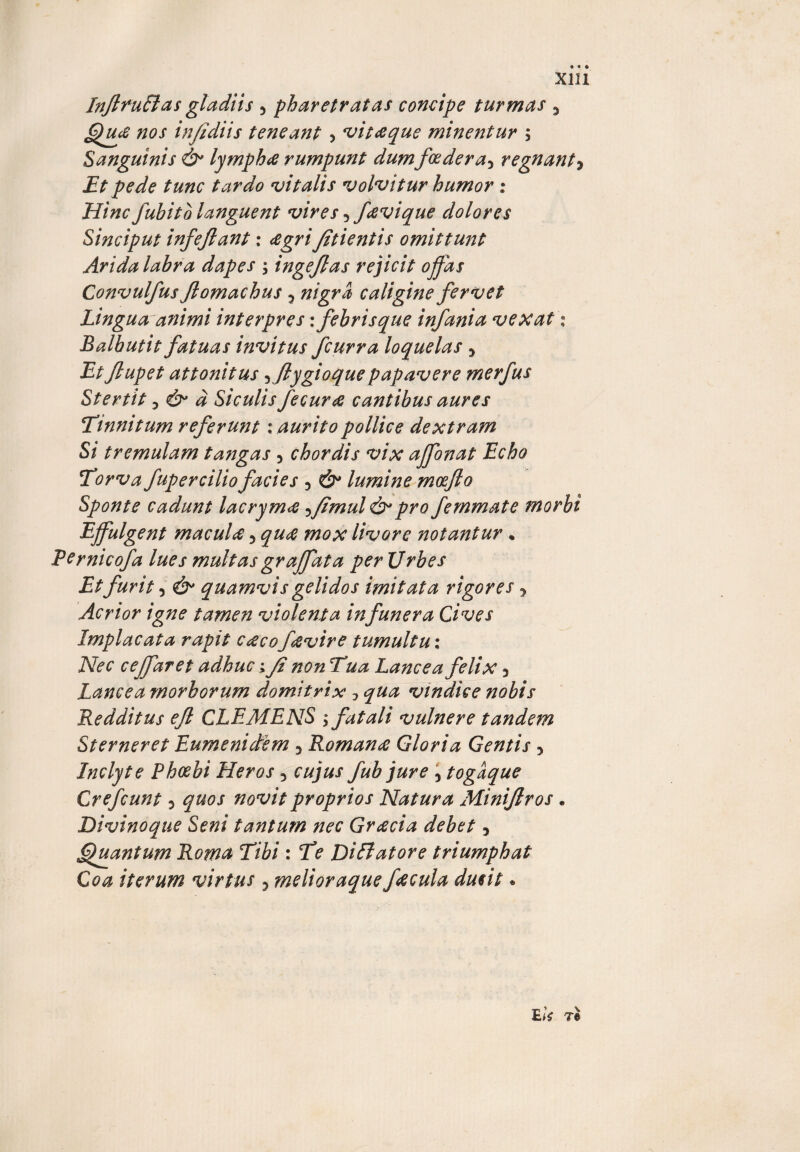 xiii
Inſtructas gladiis , pharetratas concipe turmas ,
Quæ nos inſidiis teneant , vitæque minentur ;
Sanguinis & lymphæ rumpunt dum fœdera, regnant,
Et pede tunc tardo vitalis volvitur humor :
Hinc ſubitò languent vires , ſævique dolores
Sinciput infeſtant : ægri ſitientis omittunt
Arida labra dapes ; ingeſtas rejicit offas
Convulſus ſtomachus , nigrâ caligine fervet
Lingua animi interpres : febrisque inſania vexat :
Balbutit fatuas invitus ſcurra loquelas ,
Et ſtupet attonitus , ſtygioque papavere merſus
Stertit , & à Siculis ſecuræ cantibus aures
Tinnitum referunt : aurito pollice dextram
Si tremulam tangas , chordis vix aſſonat Echo
Torva ſupercilio facies , & lumine mœſto
Sponte cadunt lacrymæ , ſimul & pro ſemmate morbi
Effulgent maculæ , quæ mox livore notantur .
Pernicoſa lues multas graſſata per Urbes
Et furit , & quamvis gelidos imitata rigores ,
Acrior igne tamen violenta in funera Cives
Implacata rapit cæco ſævire tumultu :
Nec ceſſaret adhuc ; ſi non Tua Lancea felix ,
Lancea morborum domitrix , qua vindice nobis
Redditus eſt CLEMENS ; fatali vulnere tandem
Sterneret Eumenidem , Romanæ Gloria Gentis ,
Inclyte Phœbi Heros , cujus ſub jure , togâque
Creſcunt , quos novit proprios Natura Miniſtros .
Divinoque Seni tantum nec Græcia debet ,
Quantum Roma Tibi : Te Dictatore triumphat
Coa iterum virtus , melioraque ſæcula ducit .
Εἰς τὸ